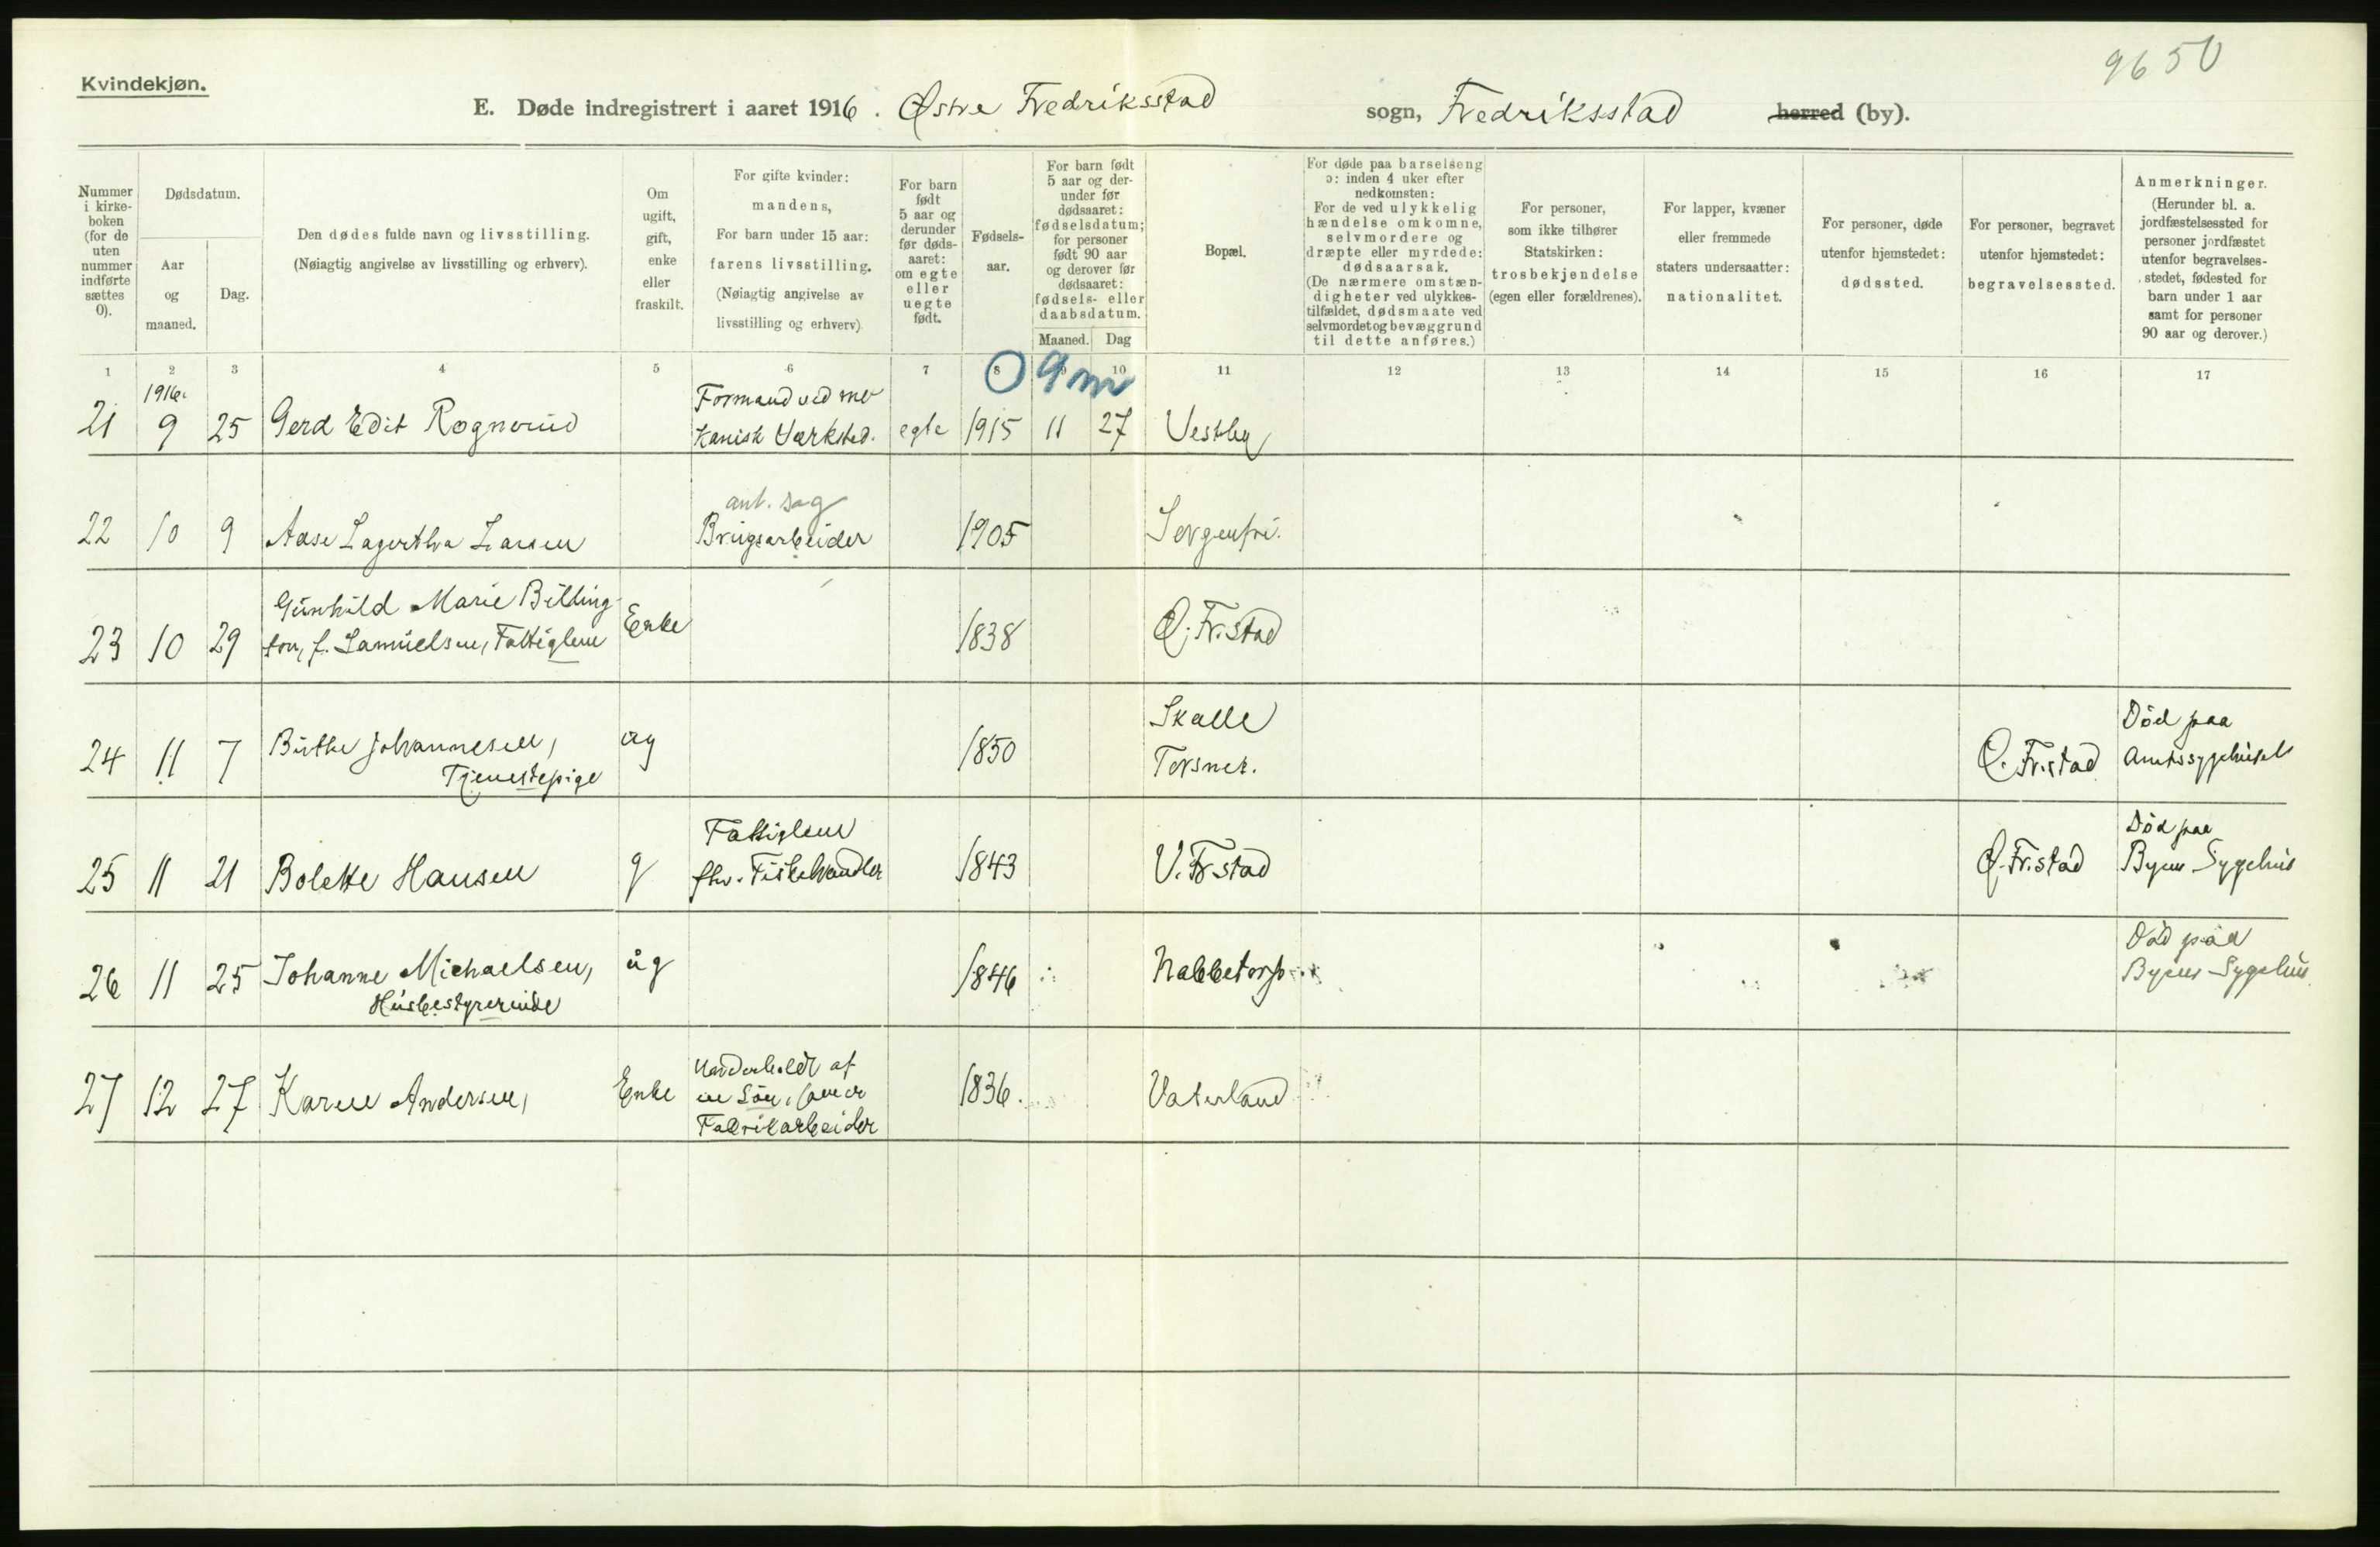 9650
Kvindekjøn.
E. Døde indregistrert i aaret 1916. Østre Fredriksstad sogn, Fredriksstad herred (by).
Nummer
i kirke-
boken
(for de
uten
nummer
indførte
sættes
0).
Dødsdatum.
Aar
og
maaned.
Dag.
Den dødes fulde navn og livsstilling.
(Nøiagtig angivelse av livsstilling og erhverv).
Om
ugift,
gift,
enke
eller
fraskilt.
For gifte kvinder:
mandens,
For barn under 15 aar:
farens livsstilling.
(Nøiagtig angivelse av
livsstilling og erhverv)
For barn
født
5 aar og
derunder
før døds-
aaret:
om egte
eller
uegte
født.
Fødsels-
aar.
For barn født
5 aar og der-
under før
dødsaaret:
fødselsdatum;
for personer
født 90 aar
og derover før
dødsaaret:
fødsels- eller
daabsdatum.
Maaned. Dag
Bopæl.
For døde paa barselseng
ɔ: inden 4 uker efter
nedkomsten:
For de ved ulykkelig
hændelse omkomne,
selvmordere og
dræpte eller myrdede:
dødsaarsak.
(De nærmere omstæn-
digheter ved ulykkes-
tilfældet, dødsmaate ved
selvmordet og bevæggrund
til dette anføres.)
For personer,
som ikke tilhører
Statskirken:
trosbekjendelse
(egen eller forældrenes).
For lapper, kvæner
eller fremmede
staters undersaatter:
nationalitet.
For personer, døde
utenfor hjemstedet:
dødssted.
For personer, begravet
utenfor hjemstedet:
begravelsessted.
Anmerkninger.
(Herunder bl. a.
jordfæstelsessted for
personer jordfæstet
utenfor begravelses-
stedet, fødested for
barn under 1 aar
samt for personer
90 aar og derover.)
1 2 3 4 5 6 7 8 9 10 11 12 13 14 15 16 17
0 9 m
1916.
Formand ved me
21 9 25 Gerd Edit Rognerud kanisk Værksted. egte 1915 11 27 Vestby
ant. sag
22 10 9 Aase Lagertha Larsen Brugsarbeider 1905 Sorgenfri.
Gunhild Marie Billing
23 10 29 ton, f. Samuelsen, Fattiglem Enke 1838 Ø. Fr.stad
Skalle
Død paa
24 11 7 Birthe Johannesen, ug 1850 Torsnes. Ø. Fr.stad Amtssygehuset
Tjenestepige
Fattiglem
Død paa
25 11 21 Bolette Hansen g fhv. Fiskehandler 1843 V. Fr.stad Ø. Fr.stad Byens Sygehus
Død paa
26 11 25 Johanne Michaelsen, ug 1846 Nabbetorp Byens Sygehus
Husbestyrerinde
Underholdt af
27 12 27 Karen Andersen, Enke en Søn, som er 1836. Vaterland
Fabrikarbeider